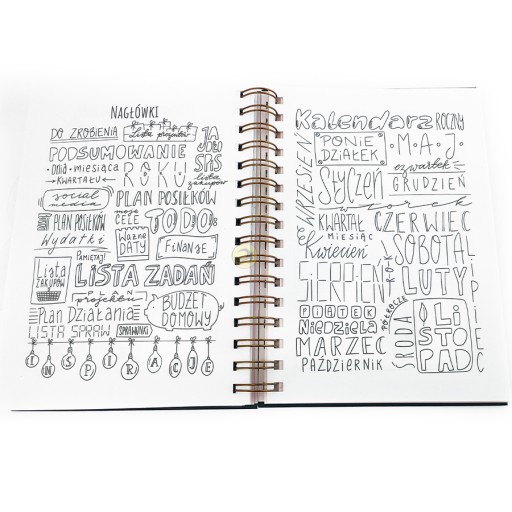 NAGŁÓWKI
DO ZROBIENIA
Lista prezentów
PODSUMOWANIE
dnia miesiąca
KWARTAŁU
ROKU
lista zakupów
social media
PLAN POSIŁKÓW
PLAN POSIŁKÓW
moje CELE
TO DO
Wydatki
WAŻNE DATY
FINANSE
PAMIĘTAJ
Lista ZAKUPÓW
LISTA ZADAŃ
PLAN projektu
BUDŻET DOMOWY
Plan Działania
LISTA SPRAW
SPRAWUNKI
INSPIRACJE
Kalendarz ROCZNY
WRZESIEŃ
PONIEDZIAŁEK
MAJ
czwartek
STYCZEŃ
GRUDZIEŃ
wtorek
KWARTAŁ
MIESIĄC
CZERWIEC
Kwiecień
ROK
SOBOTA
SIERPIEŃ
LUTY
PIĄTEK
NIEDZIELA
PÓŁROCZE
MARZEC
ŚRODA
LISTOPAD
PAŹDZIERNIK